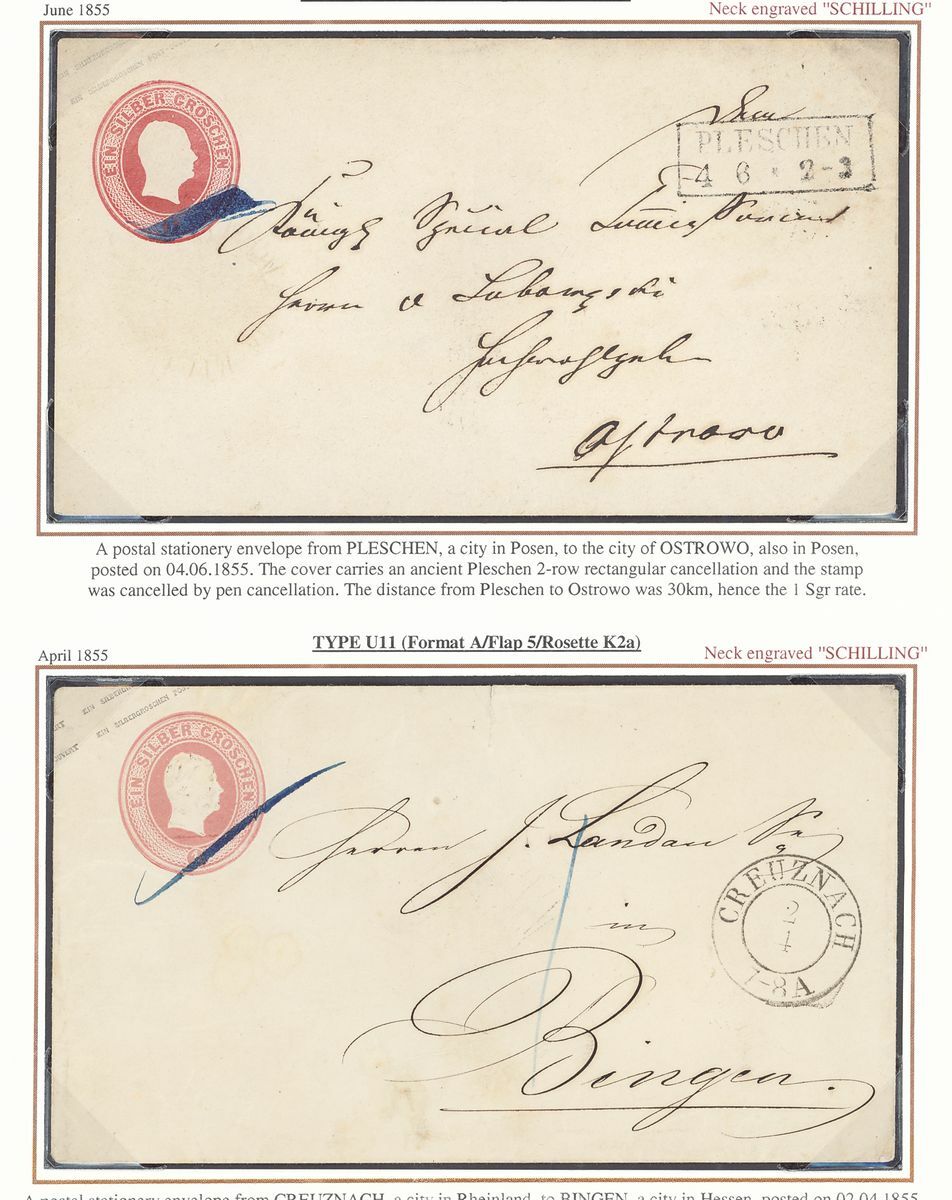 June 1855
Neck engraved "SCHILLING"
EIN SILBERGROSCHEN POST
EIN SILBER GROSCHEN
PLESCHEN
4 6 * 2-3
Herrn
Ostrowo
A postal stationery envelope from PLESCHEN, a city in Posen, to the city of OSTROWO, also in Posen,
posted on 04.06.1855. The cover carries an ancient Pleschen 2-row rectangular cancellation and the stamp
was cancelled by pen cancellation. The distance from Pleschen to Ostrowo was 30km, hence the 1 Sgr rate.
April 1855
TYPE U11 (Format A/Flap 5/Rosette K2a)
Neck engraved "SCHILLING"
EIN SILBERGROSCHEN POST
EIN SILBER GROSCHEN
Herren J. Landau
in
Bingen.
CREUZNACH
2
4
7-8A
A postal stationery envelope from CREUZNACH, a city in Rheinland, to BINGEN, a city in Hessen, posted on 02.04.1855.